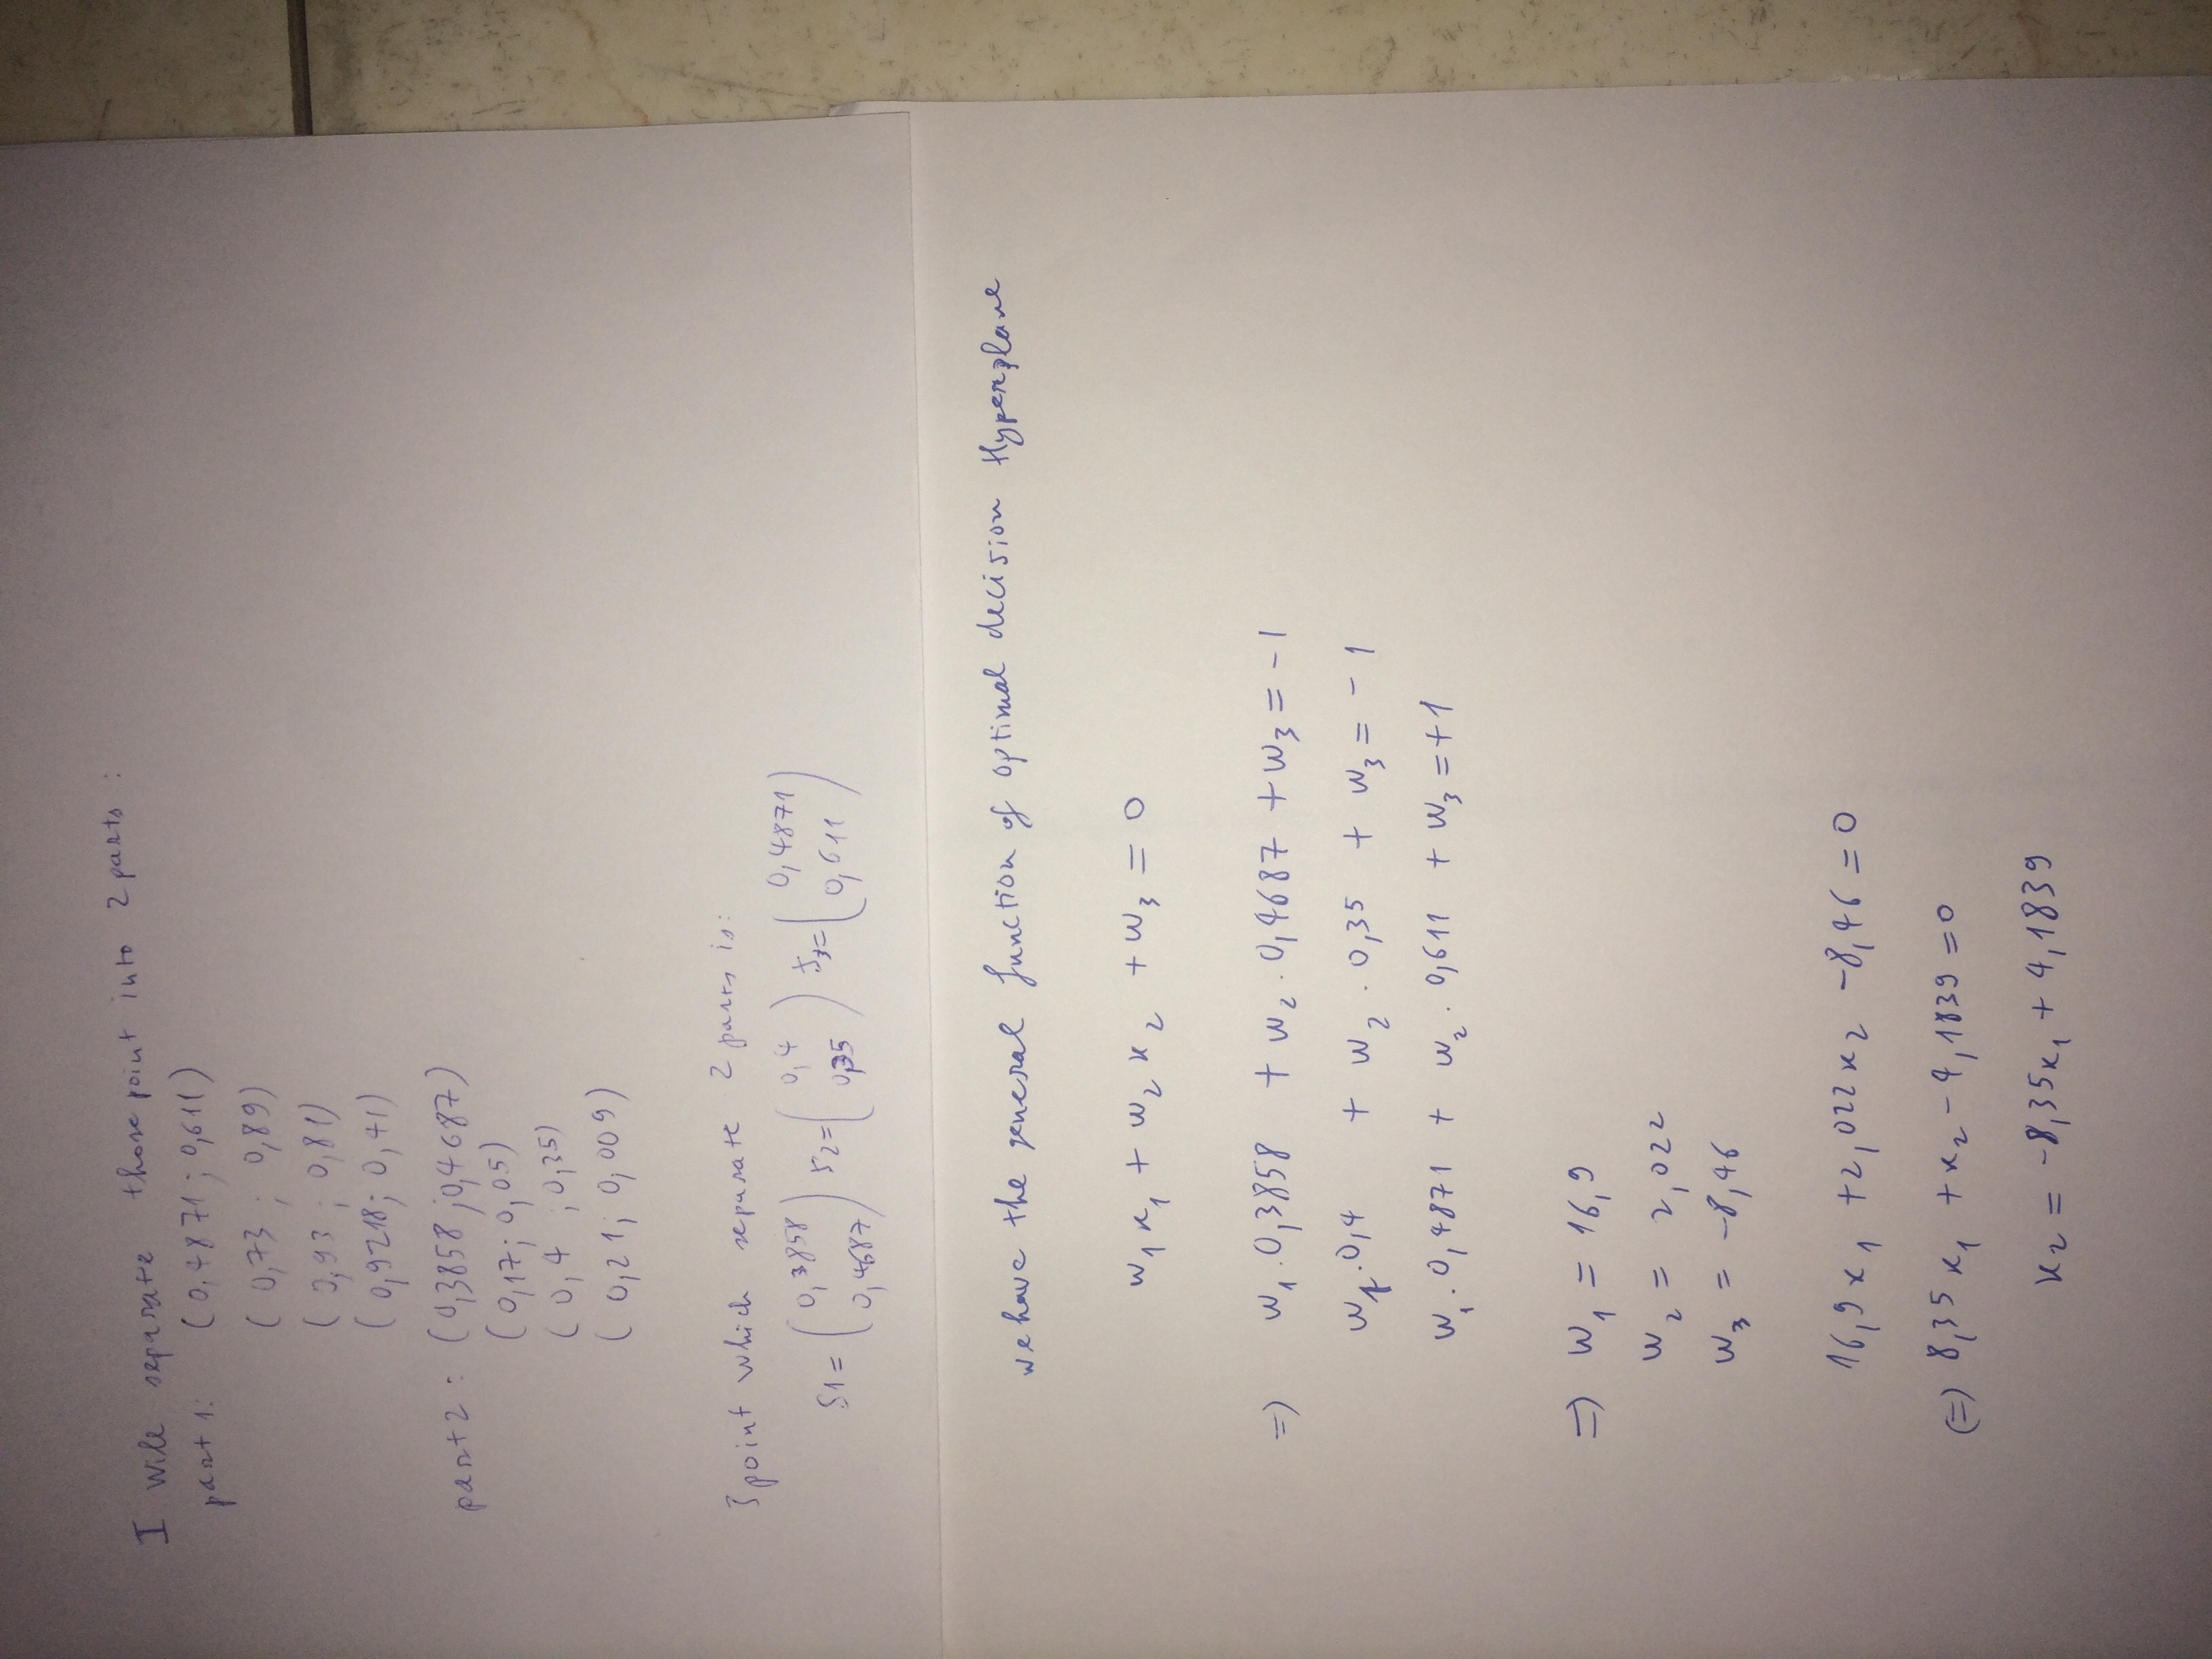 I will separate those point into 2 parts :
part 1: (0,4871 ; 0,611)
(0,73 ; 0,89)
(0,93 ; 0,81)
(0,9218; 0,41)
part 2 : (0,3858 ; 0,4687)
(0,17; 0,05)
(0,4 ; 0,35)
(0,21; 0,009)
3 point which separate 2 parts is:
S1 = (0,3858 0,4687) S2 = (0,4 0,35) S3 = (0,4871 0,611)
we have the general function of optimal decision Hyperplane
w1 x1 + w2 x2 + w3 = 0
=) w1 . 0,3858 + w2 . 0,4687 + w3 = -1
w1 . 0,4 + w2 . 0,35 + w3 = -1
w1 . 0,4871 + w2 . 0,611 + w3 = +1
=) w1 = 16,9
w2 = 2,022
w3 = -8,46
16,9 x1 + 2,022 x2 - 8,46 = 0
(=) 8,35 x1 + x2 - 4,1839 = 0
x2 = -8,35x1 + 4,1839